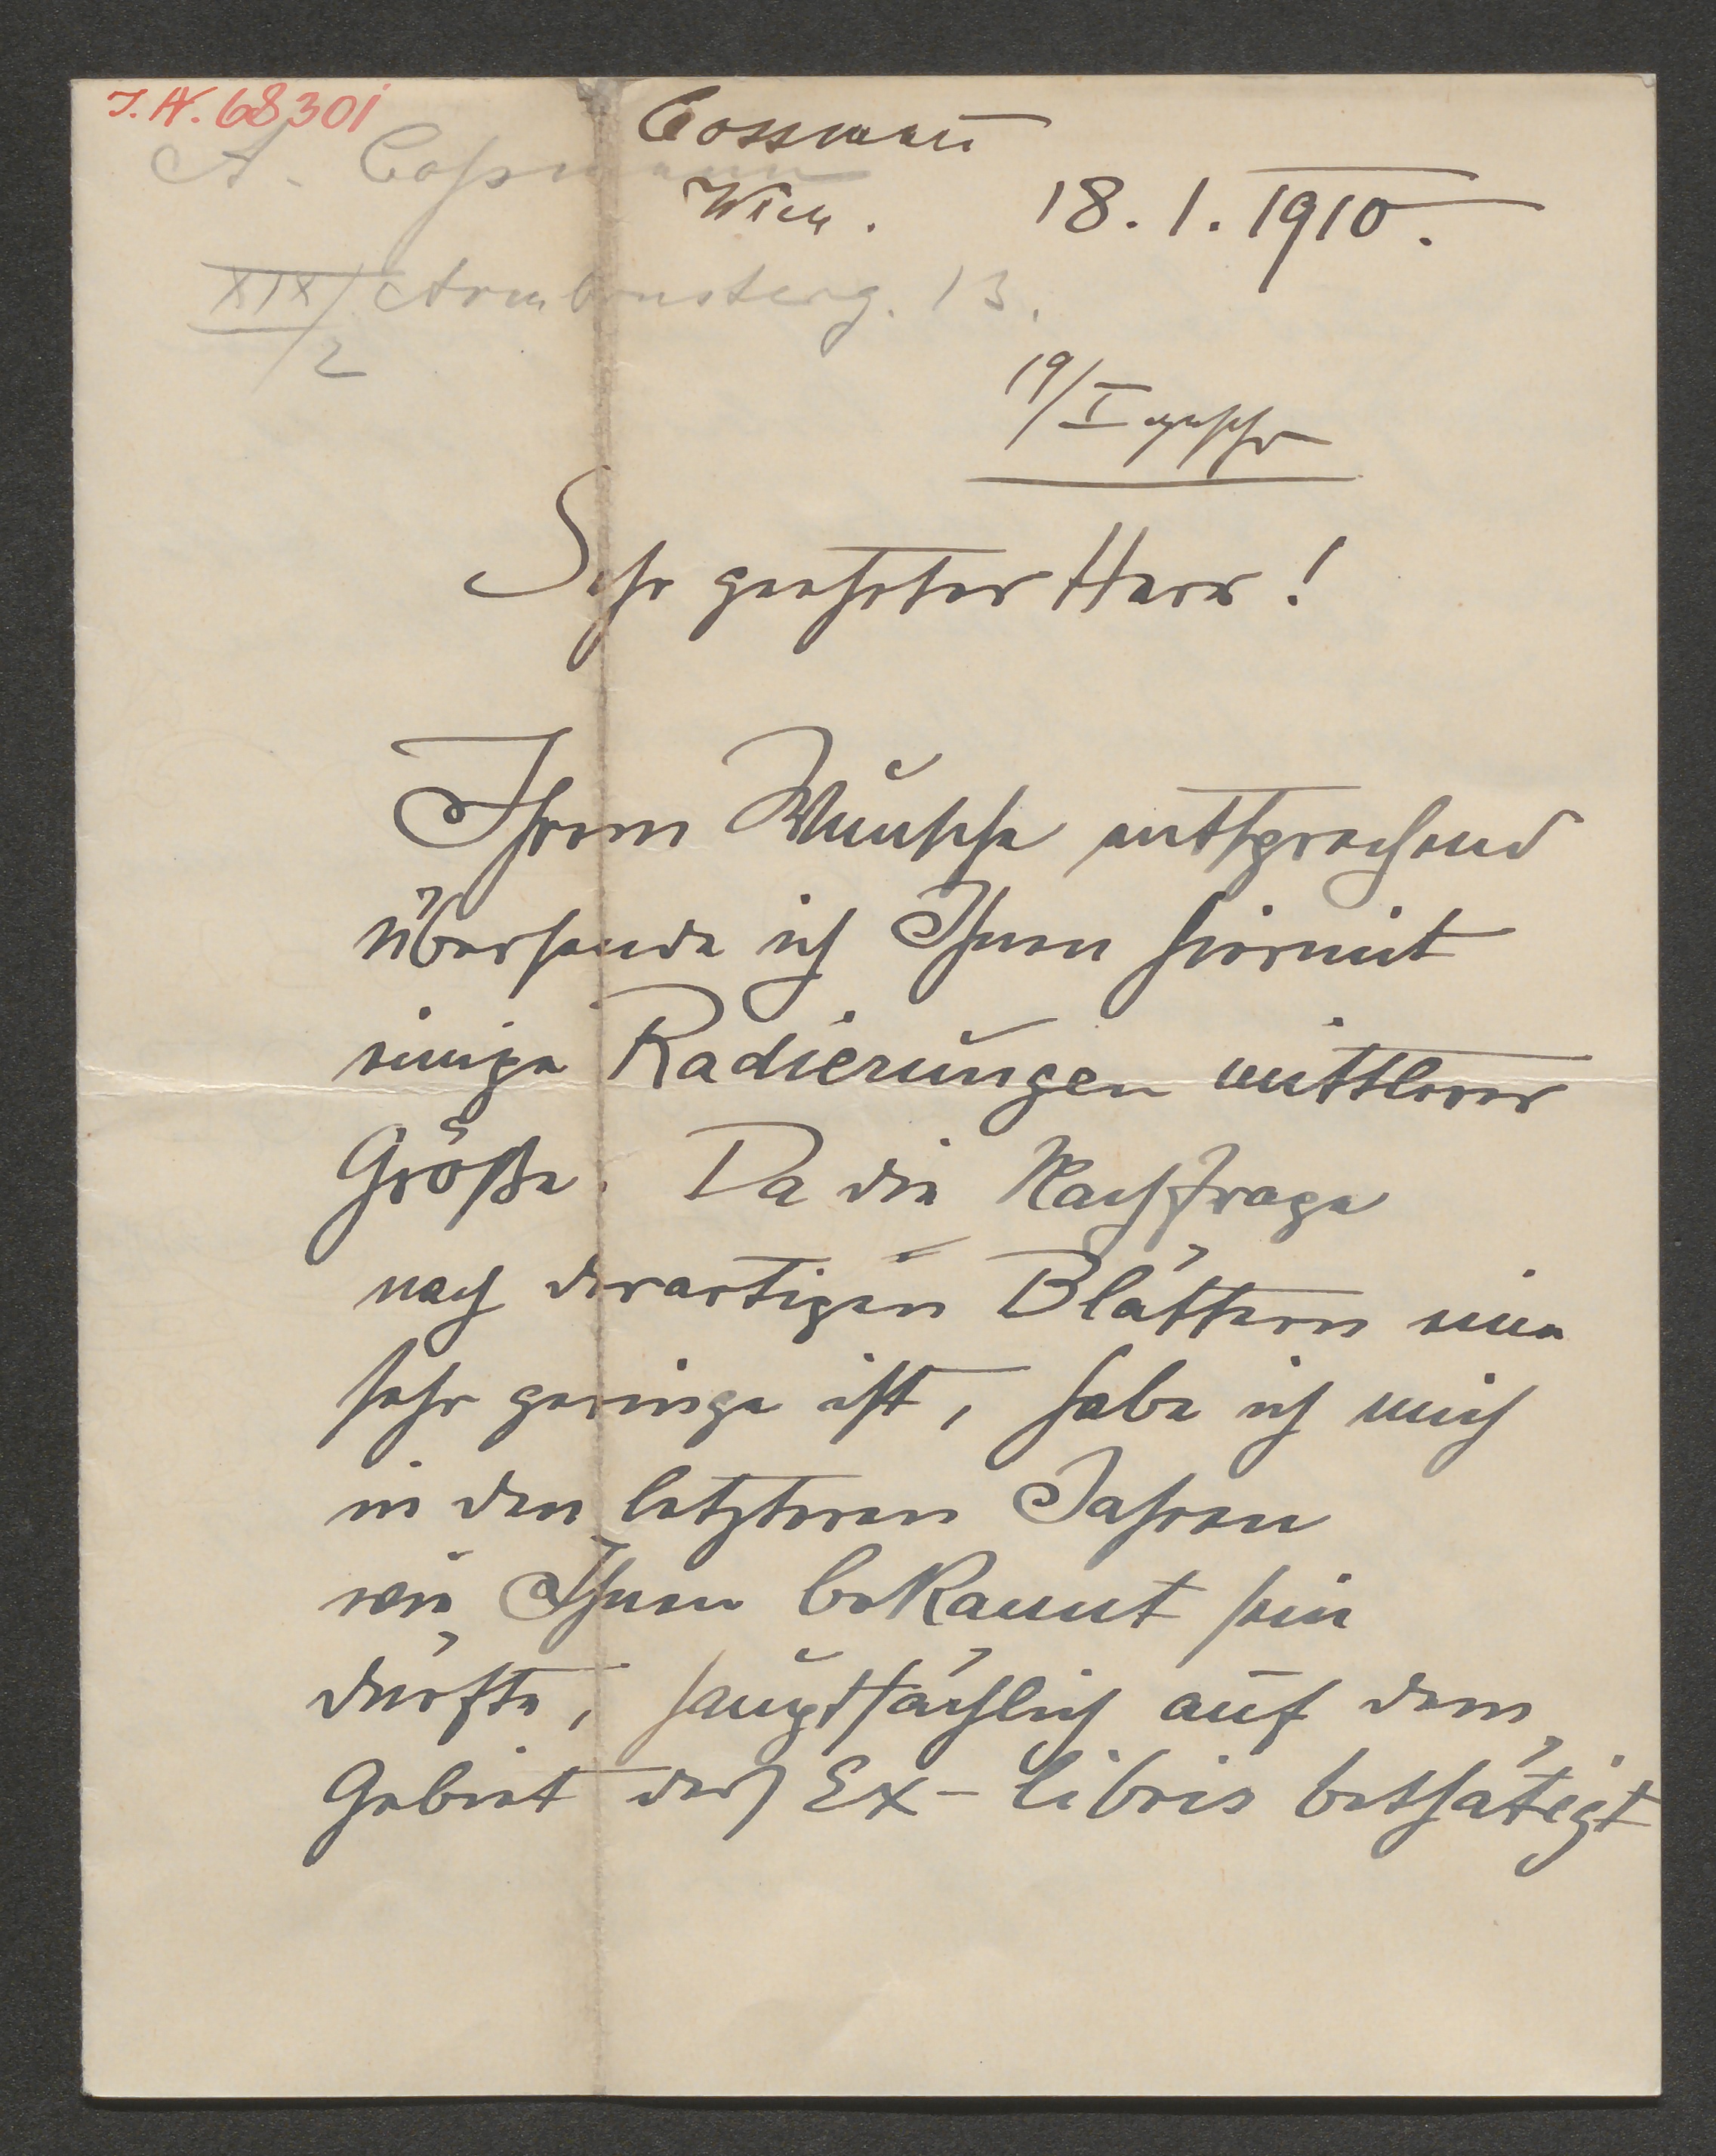 I. N. 68301
Cossmann
A. Coßmann
Wien. 18. 1. 1910.
XIX/2 Armbrusterg. 13.
19/I
Sehr geehrter Herr!
Ihrem Wunsche entsprechend
übersende ich Ihnen hiermit
einige Radierungen mittlerer
Größe. Da die Nachfrage
nach derartigen Blättern eine
sehr geringe ist, habe ich mich
in den letzteren Jahren
wie Ihnen bekannt sein
dürfte, hauptsächlich auf dem
Gebiet des Ex-libris bethätigt